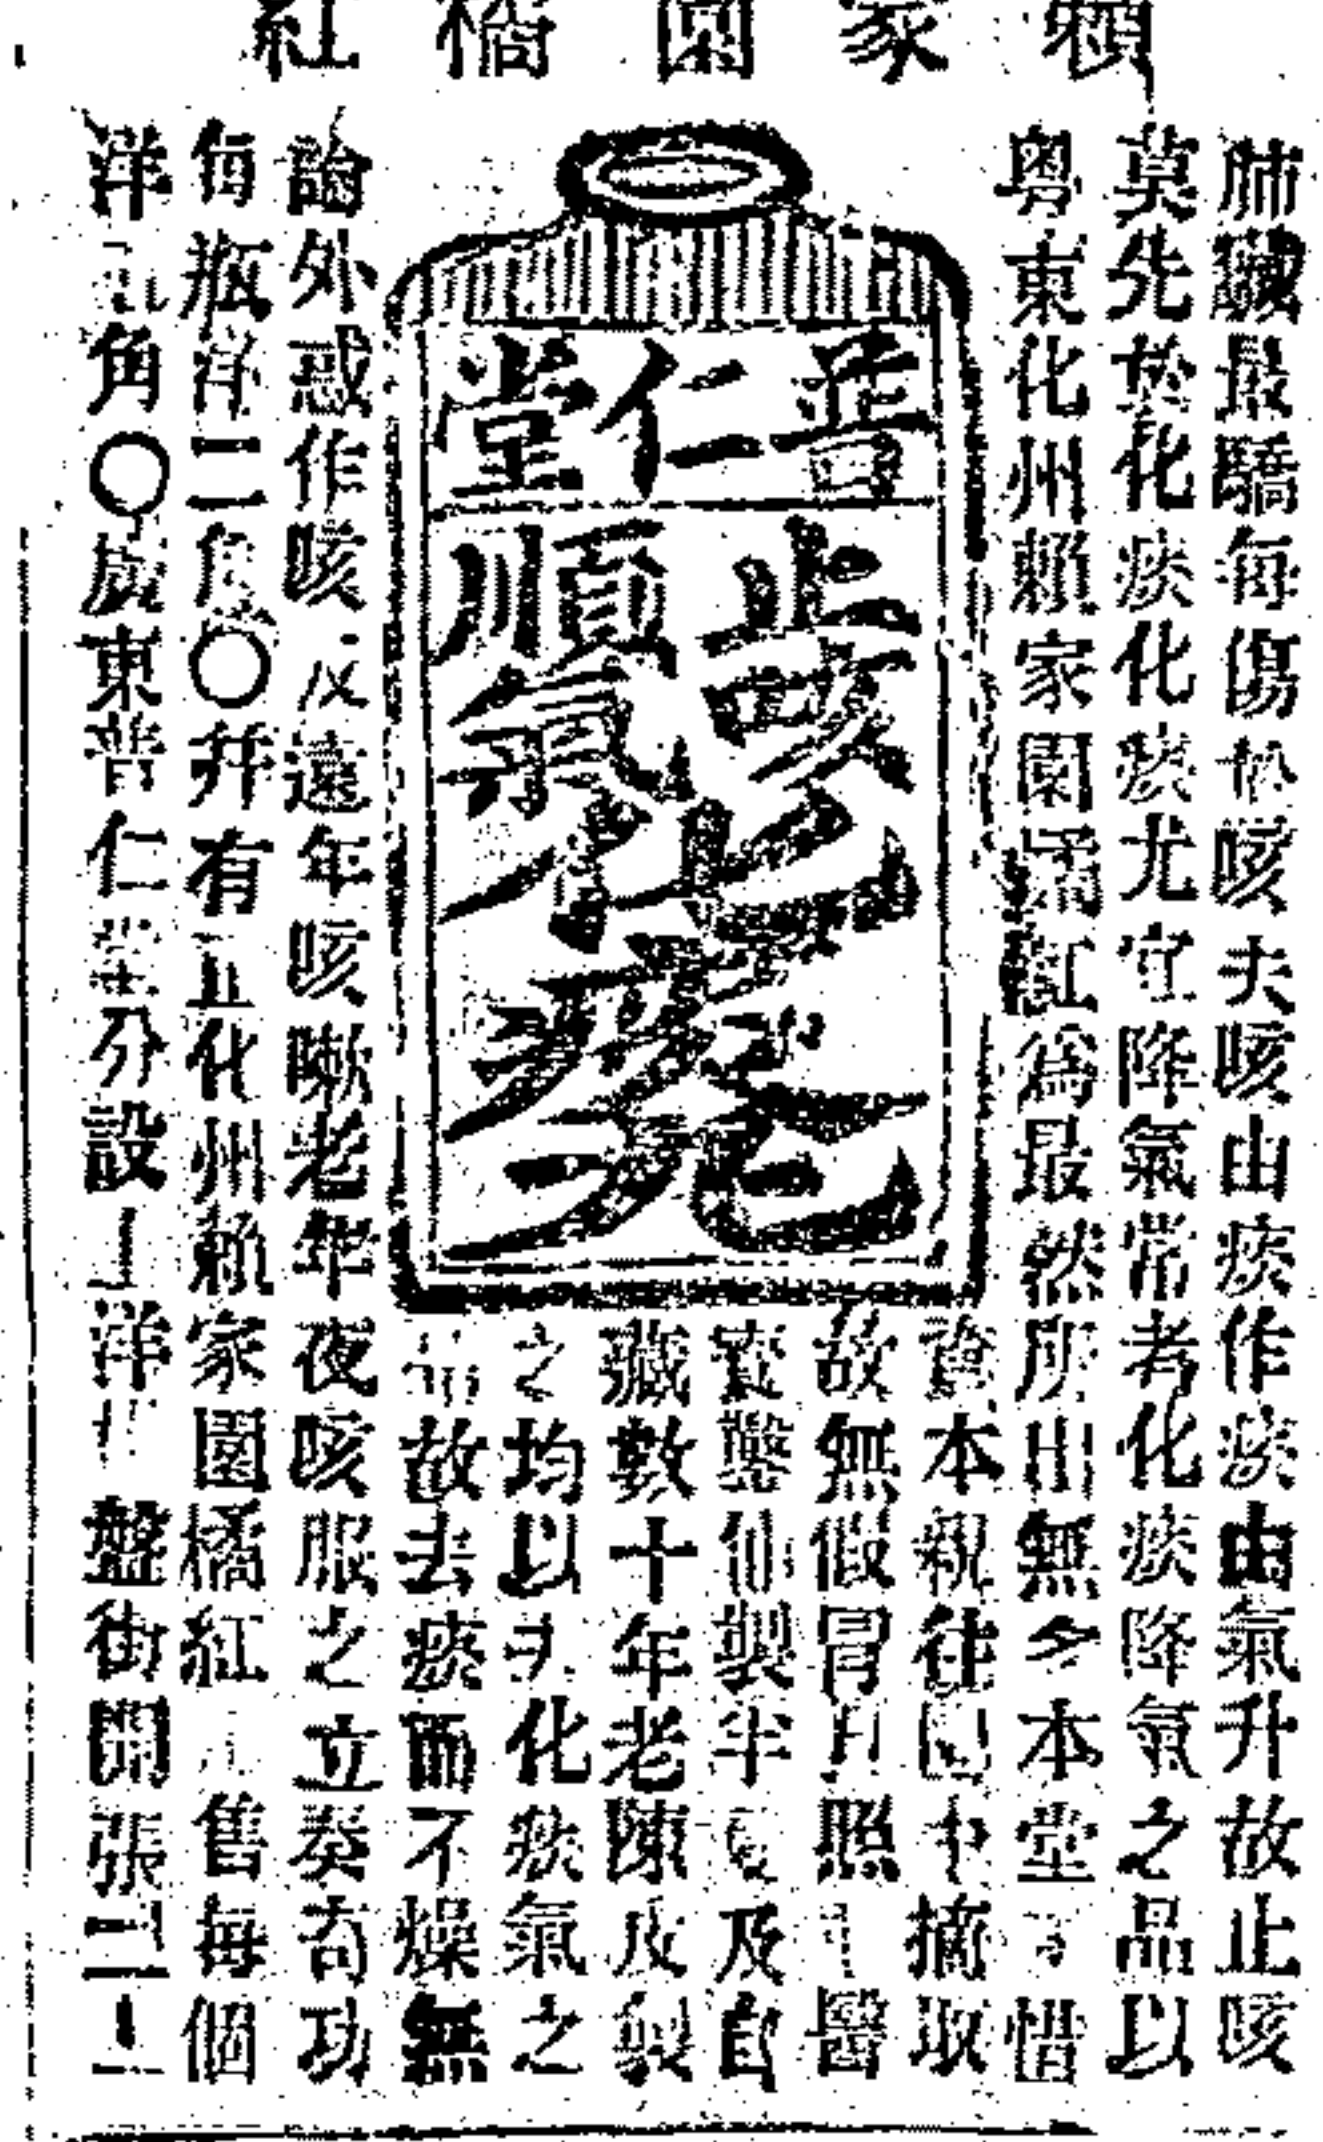 賴家園橘紅
肺臟最驕每傷於咳夫咳由痰作痰由氣升故止咳
莫先於化痰化痰尤宜降氣常考化痰降氣之品以
粵東化州賴家園橘紅爲最然所出無多本堂不惜
資本親往園中摘取
故無假冒且照醫
鑒仙製半夏及自
藏數十年老陳皮製
之均以其化痰氣之
故去痰而不燥無
普仁堂
止咳化痰
順氣
論外感作咳及遠年咳嗽老年夜咳服之立奏奇功
每瓶洋二角〇并有正化州賴家園橘紅 售每個
洋 角〇廣東普仁堂分設上洋 盤街開張二